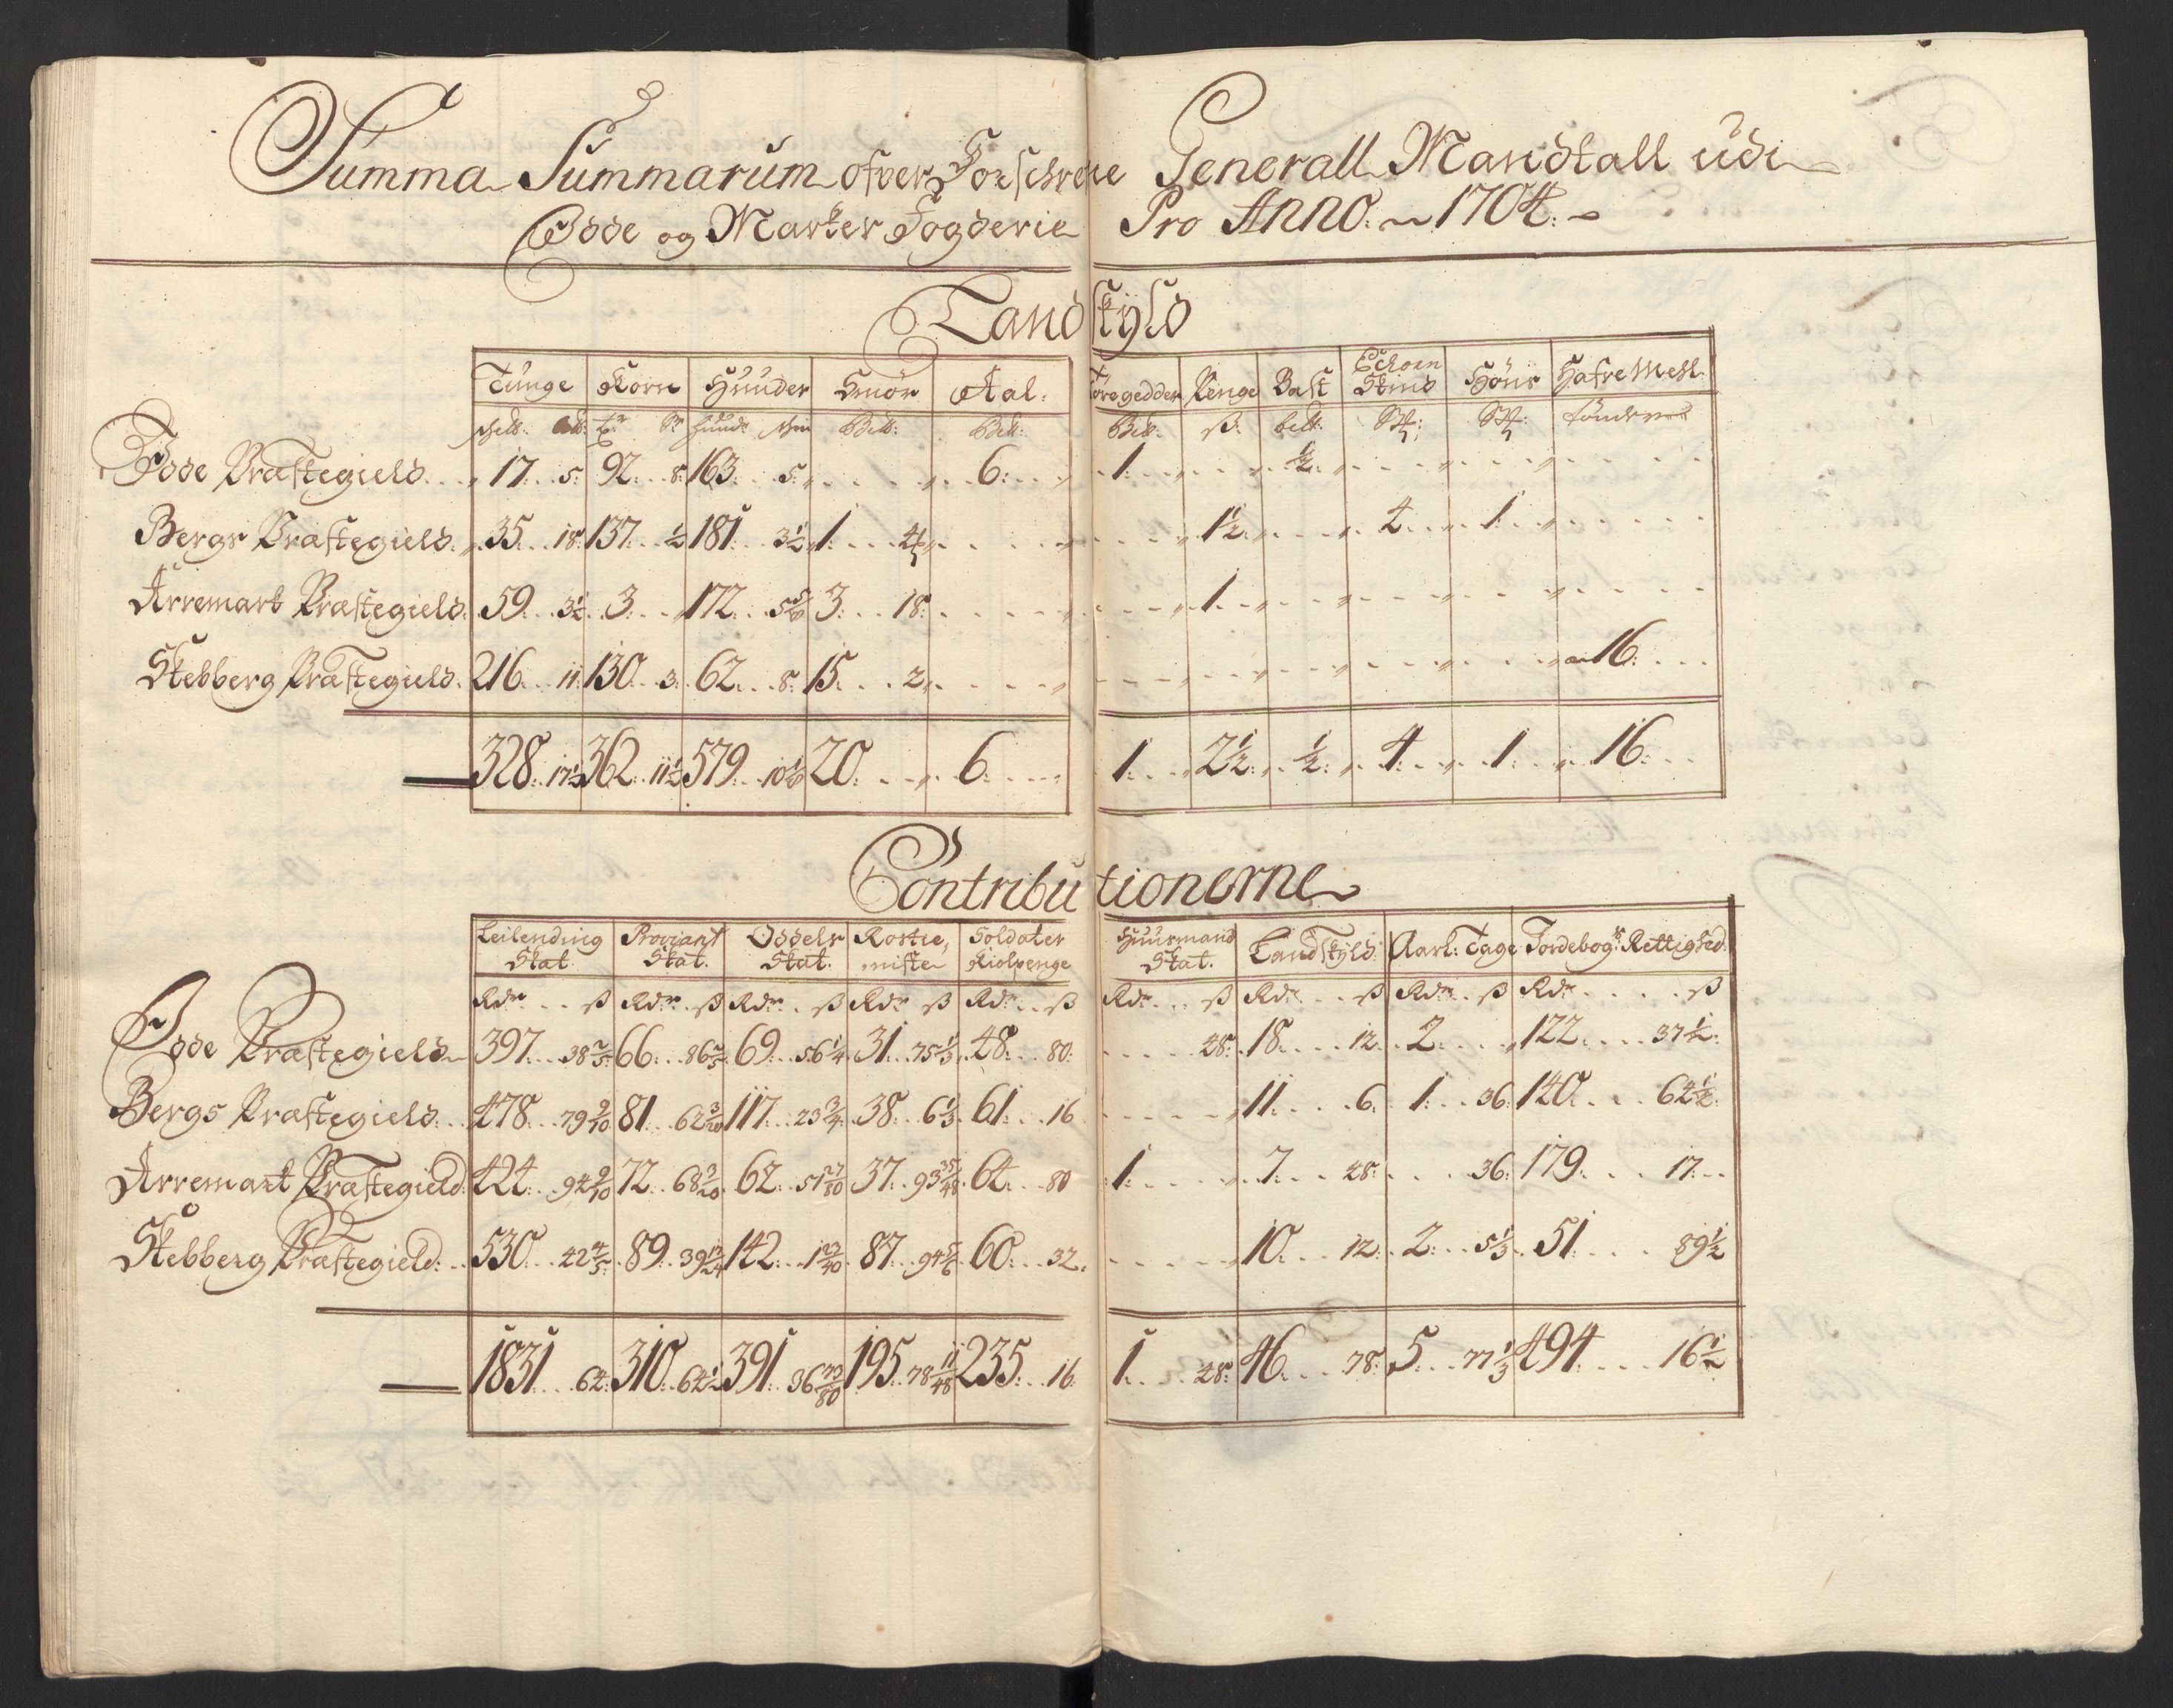 Summa Summarum ofver Forschrefne Generall Mandtall udi
Idde og Marker Fogderie Pro Anno 1704.
Landskyld
Tunge | Korn | Huuder | Smør | Aal: | Tøregedder | Penge | Bast | Echorn Skind | Høns | Hafre Mehl.
Idde Præstegield 17. 5. | 92. 8. | 163. 5. | | 6. | 1. | | ½. | | |
Bergs Præstegield. 35. 18. | 137. ½ | 181. 3½ | 1. 4 | | | 1½ | | 4. | 1. |
Arremark Præstegield. 59. 3½. | 3. | 172. 5 | 3. 18. | | | 1. | | | |
Skebberg Præstegield. 216. 11. | 130. 3. | 62. 8. | 15. 2 | | | | | | | 16.
328. 17½ | 362. 11½ | 579. 10 | 20. | 6. | 1. | 2½. | ½. | 4. | 1. | 16.
Contributionerne
Leilending Skat. | Proviant Skat. | Oddels Skat. | Rostie, | Soldater Kiolpenge | Huusmand Skat. | Landskyld. | Aarl: Tage | Jordebogs Rettighed.
Rdr ß | Rdr ß | Rdr ß | Rdr ß | Rdr ß | Rdr ß | Rdr ß | Rdr ß | Rdr ß
Idde Præstegield 397. 38⅖ | 66. 86⅖ | 69. 56¼ | 31. 75⅓ | 48. 80. | 48. | 18. 12. | 2. | 122. 37½.
Bergs Præstegield. 478. 79 9/10 | 81. 62 3/20 | 117. 23¾ | 38. 6⅓. | 61. 16 | | 11. 6. | 1. 36. | 140. 64½.
Arremark Præstegield. 424. 94 9/10 | 72. 68 3/20 | 62. 51 27/80 | 37. 93 35/48 | 64. 80 | 1. | 7. 48. | 36. | 179. 17.
Skebberg Præstegield. 530. 42⅘ | 89. 39 | 142. 1 23/40 | 87. 94⅚ | 60. 32. | | 10. 12. | 2. 5⅓. | 51. 89½
1831. 64. | 310. 64½ | 391. 36 73/80 | 195. 78 11/48 | 235. 16. | 1. 48. | 46. 78. | 5. 77⅓ | 494. 16½